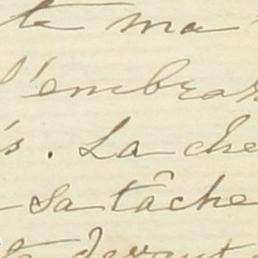 te ma
l'embras
s. La che
sa tâche
te devant